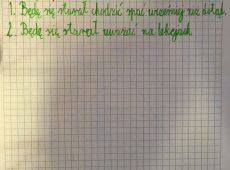 1. Będę się starał chodzić spać wcześniej niż dotąd.
2. Będę się starał uważać na lekcjach.